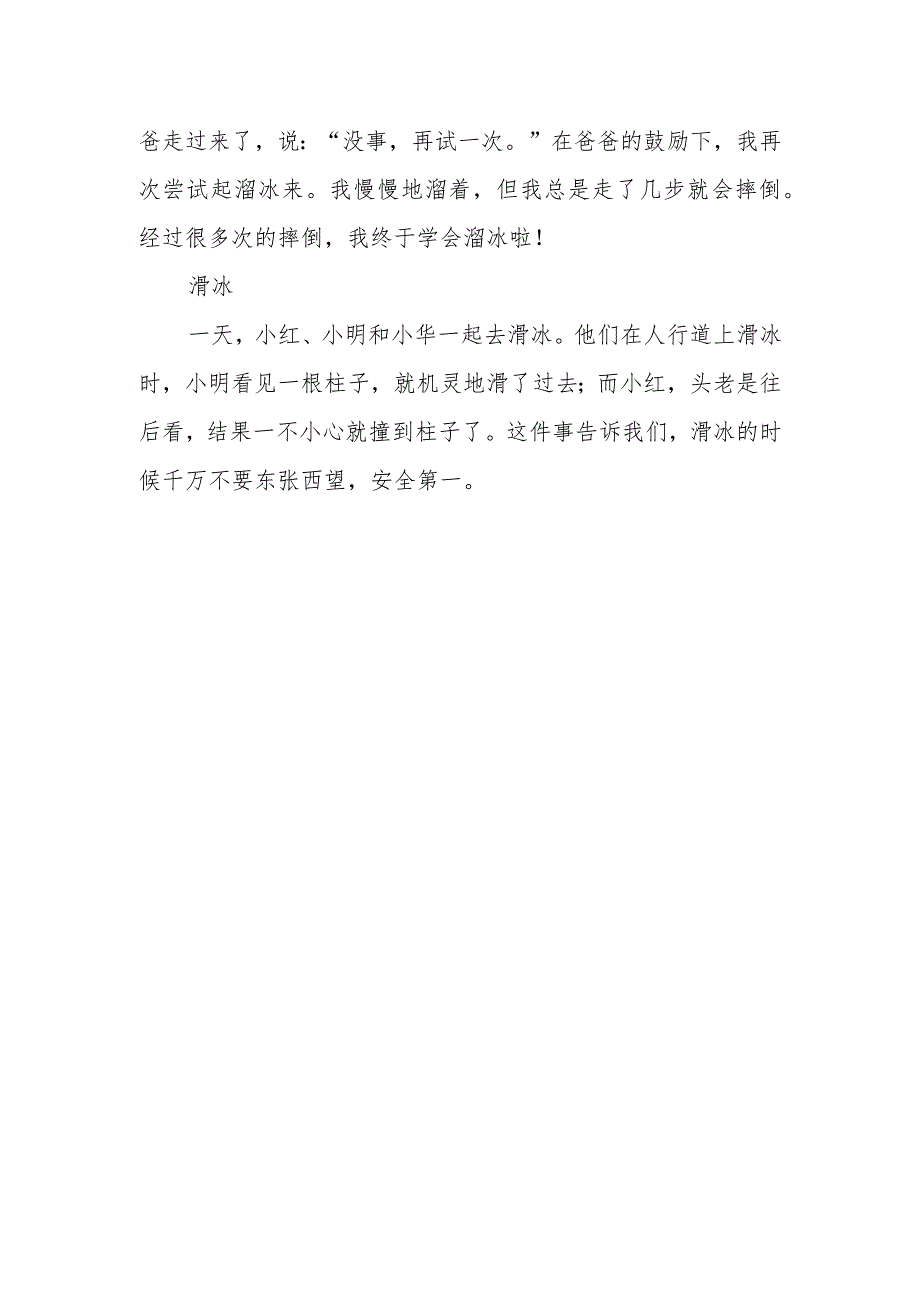 爸走过来了，说：“没事，再试一次。”在爸爸的鼓励下，我再
次尝试起溜冰来。我慢慢地溜着，但我总是走了几步就会摔倒。
经过很多次的摔倒，我终于学会溜冰啦！
滑冰
一天，小红、小明和小华一起去滑冰。他们在人行道上滑冰
时，小明看见一根柱子，就机灵地滑了过去；而小红，头老是往
后看，结果一不小心就撞到柱子了。这件事告诉我们，滑冰的时
候千万不要东张西望，安全第一。